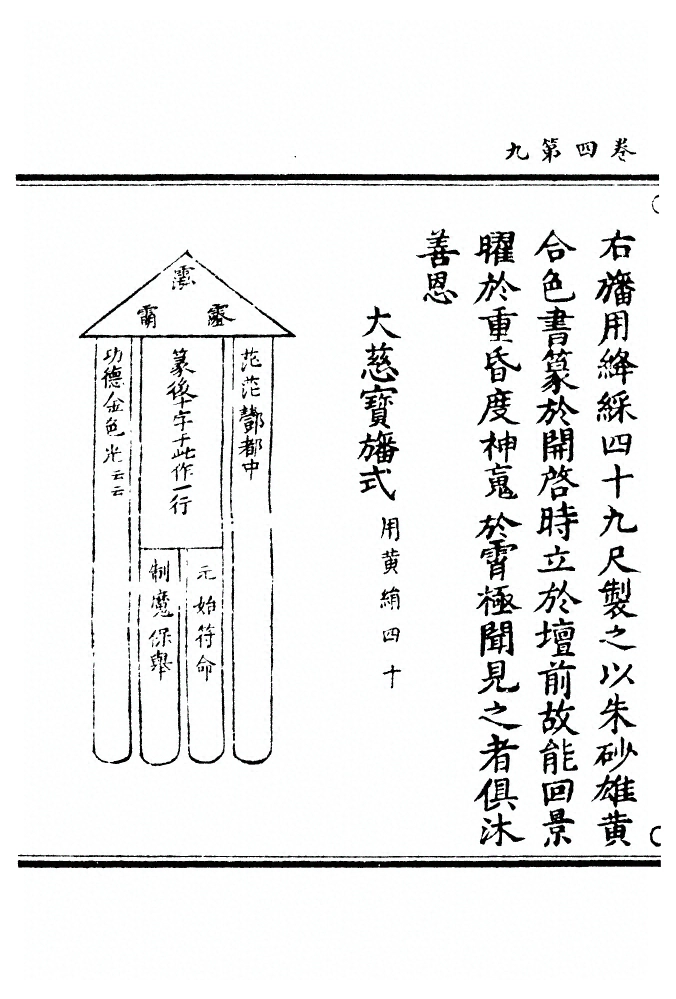 九第四卷
右旛用絳綵四十九尺製之以朱砂雄黃
合色書篆於開啓時立於壇前故能回景
曜於重昏度神䰟於霄極聞見之者俱沐
善恩
大慈寶旛式 用黃絹四十
茫茫酆都中
元始符命
篆後十字于此作一行
制魔保舉
功德金色光云云